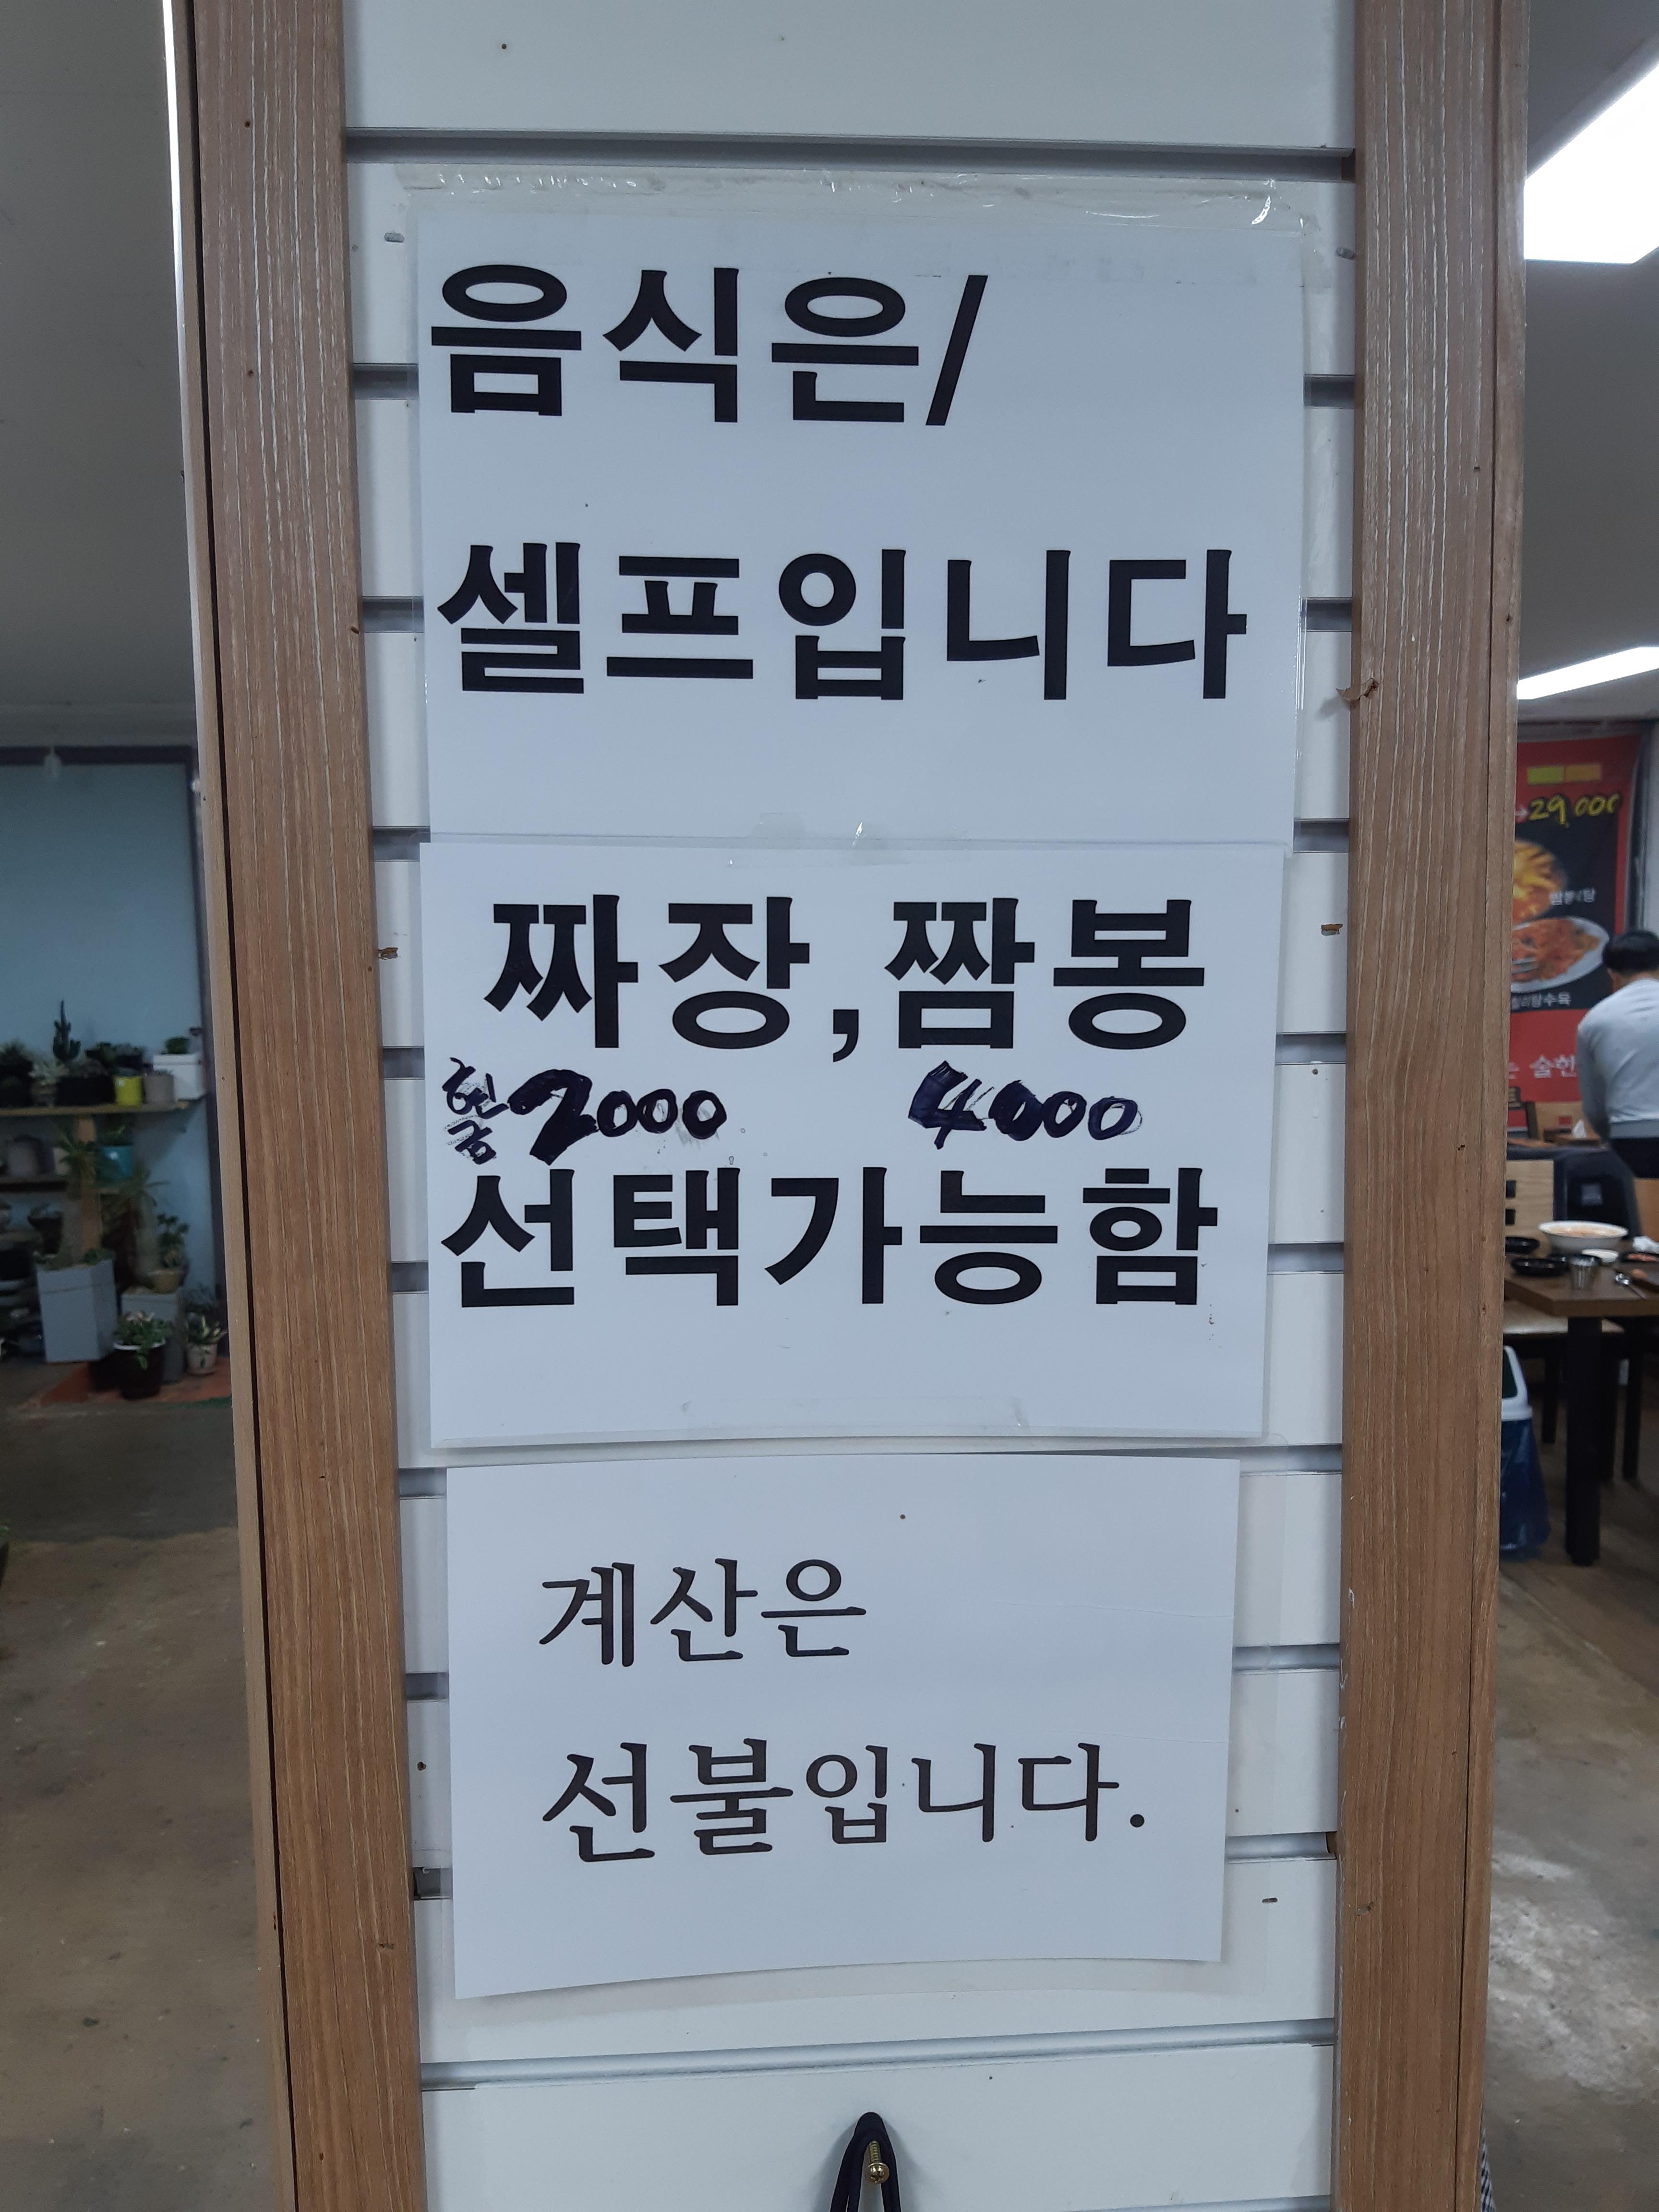 음식은/
셀프입니다
짜장,짬봉
현금 2000 4000
선택가능함
계산은
선불입니다.
29,000
탕수육
술한